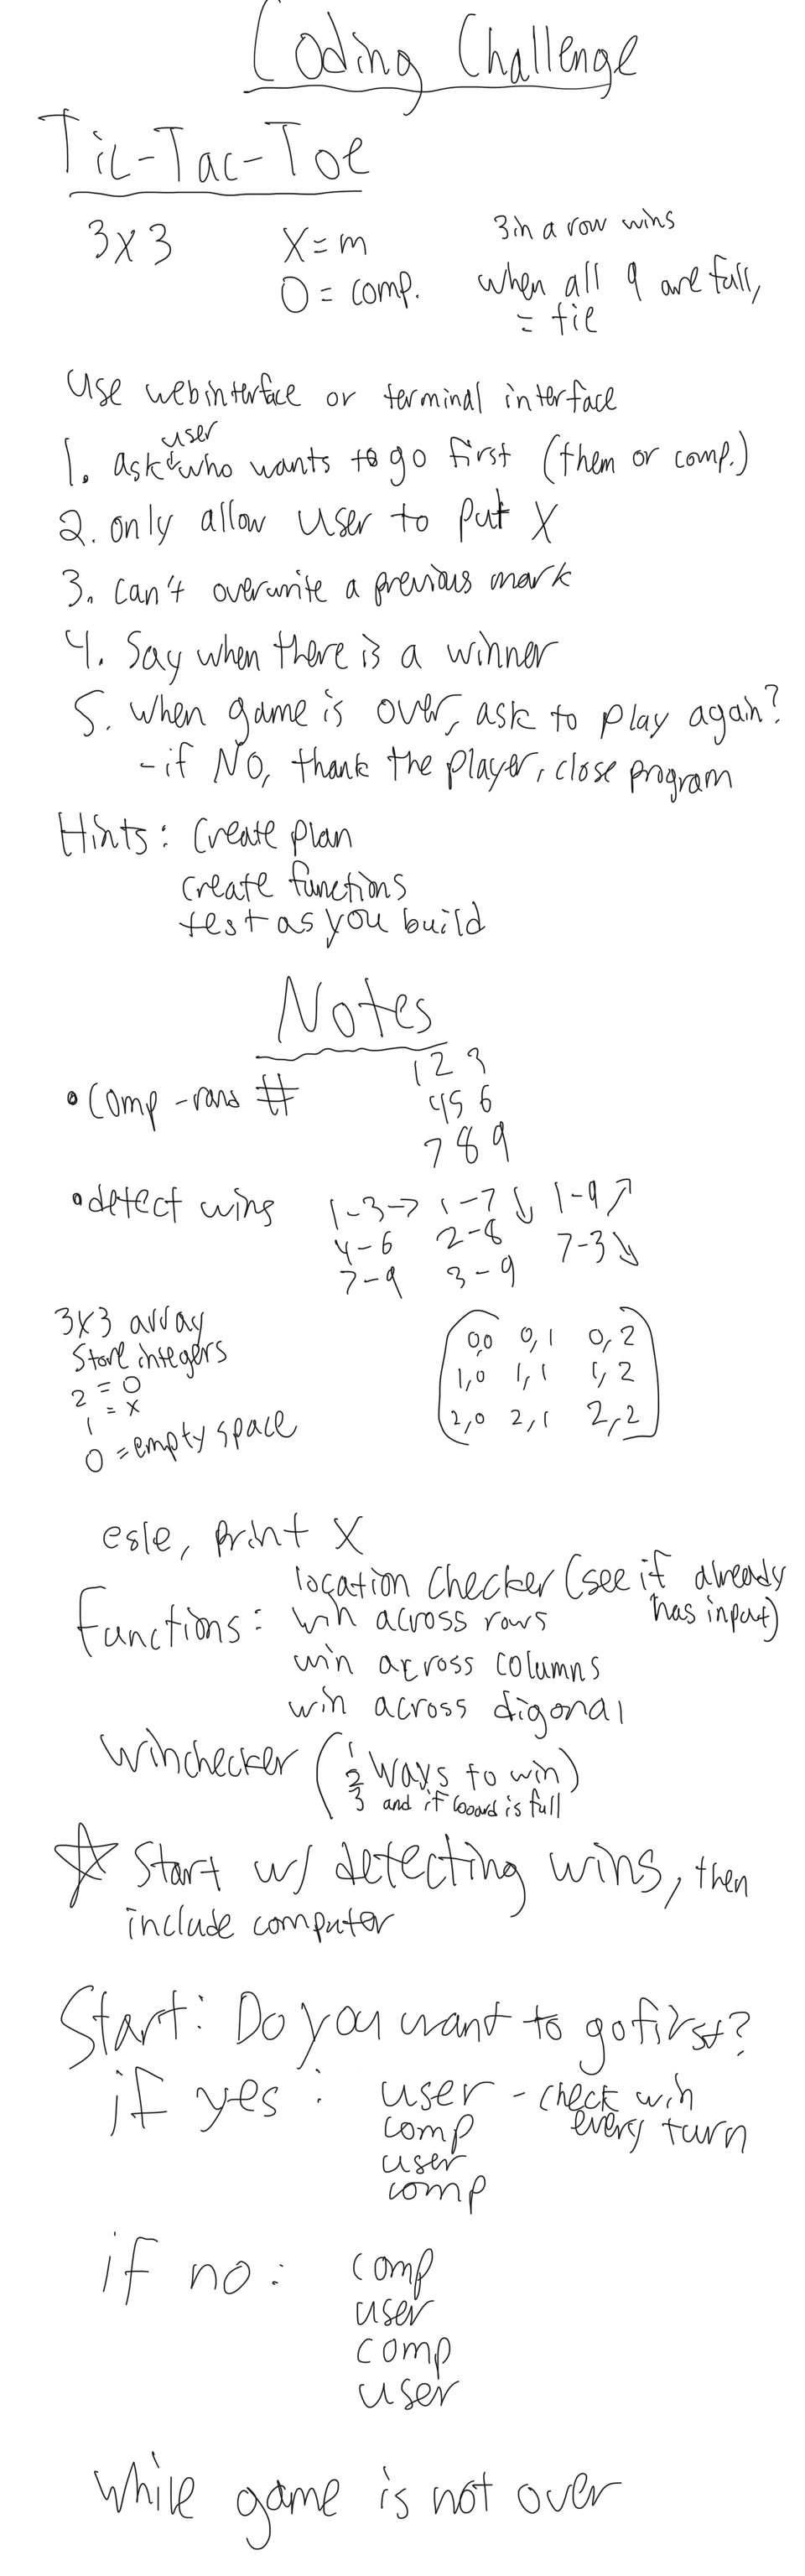 Coding Challenge
Tic-Tac-Toe
3x3 X = m 3 in a row wins
O = comp. when all 9 are full,
= tie
Use web interface or terminal interface
1. ask user who wants to go first (them or comp.)
2. only allow user to put X
3. can't overwrite a previous mark
4. Say when there is a winner
5. When game is over, ask to play again?
- if NO, thank the player, close program
Hints: Create plan
create functions
test as you build
Notes
1 2 3
• Comp - rand #
4 5 6
7 8 9
• detect wins 1-3→ 1-7↓ 1-9↗
4-6 2-8 7-3↘
7-9 3-9
3x3 array
Store integers
2 = O
1 = x
0 = empty space
0,0 0,1 0,2
1,0 1,1 1,2
2,0 2,1 2,2
esle, print X
location checker (see if already
has input)
Functions: win across rows
win across columns
win across digonal
Winchecker (1 2 3 ways to win)
and if board is full
☆ Start w/ detecting wins, then
include computer
Start: Do you want to go first?
if yes: user - check win
comp every turn
user
comp
if no: comp
user
comp
user
While game is not over